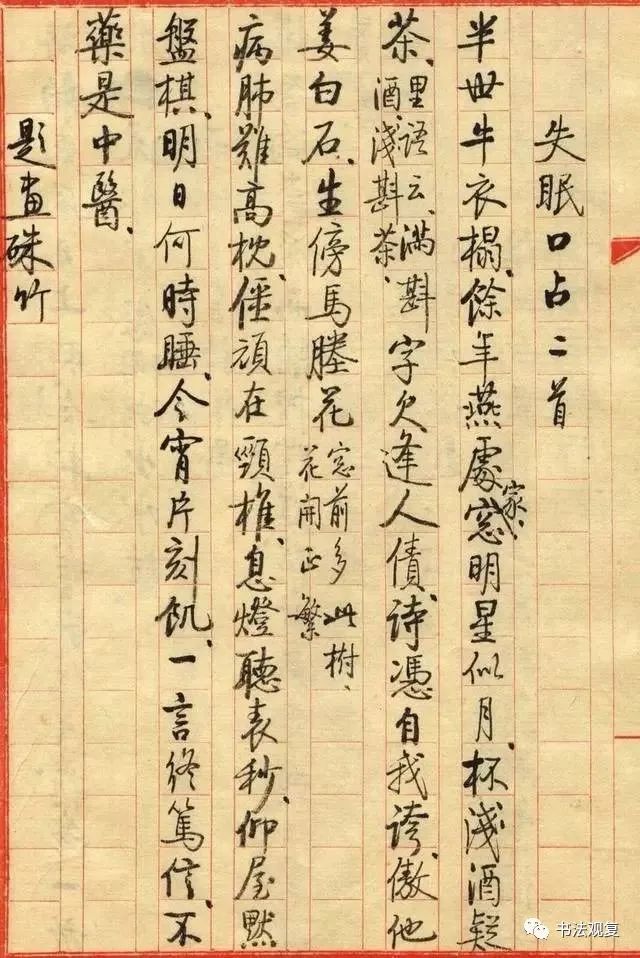 失眠口占二首
半世牛衣榻、餘年燕處家、窓明星似月、杯淺酒疑
茶、里語云、滿斟酒、淺斟茶、字欠逢人債、詩憑自我誇、傲他
姜白石、生傍馬塍花窓前多此樹、花開正繁
病肺難高枕、僵頑在頸椎、息燈聽表秒、仰屋默
盤棋、明日何時睡、今宵片刻飢、一言終篤信、不
藥是中醫、
題畫硃竹
书法观复